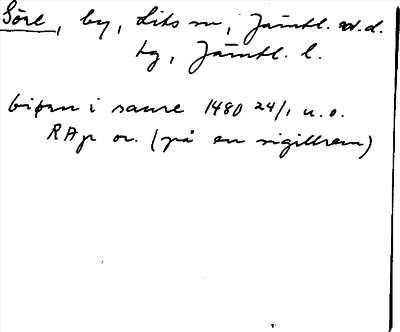 Söre, by, Lits sn, Jämtl. v. d.
tg, Jämtl. l.
biþen i saure 1480 24/1 u.o.
RAp or. (på en sigillrem)